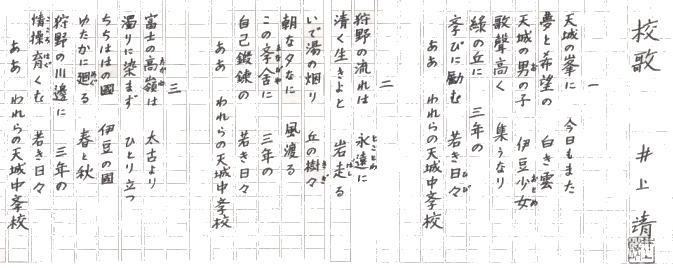 校歌
井上 靖
一
天城の峯に 今日もまた
夢と希望の 白き雲
天城の男の子 伊豆少女
歌聲高く 集うなり
緑の丘に 三年の
学びに励む 若き日々
ああ われらの天城中学校
二
狩野の流れは 永遠に
清く生きよと 岩走る
いで湯の烟り 丘の樹々
朝な夕なに 風渡る
この学舎に 三年の
自己鍛錬の 若き日々
ああ われらの天城中学校
三
富士の高嶺は 太古より
濁りに染まず ひとり立つ
ちちははの國 伊豆の國
ゆたかに廻る 春と秋
狩野の川邊に 三年の
情操育くむ 若き日々
ああ われらの天城中学校